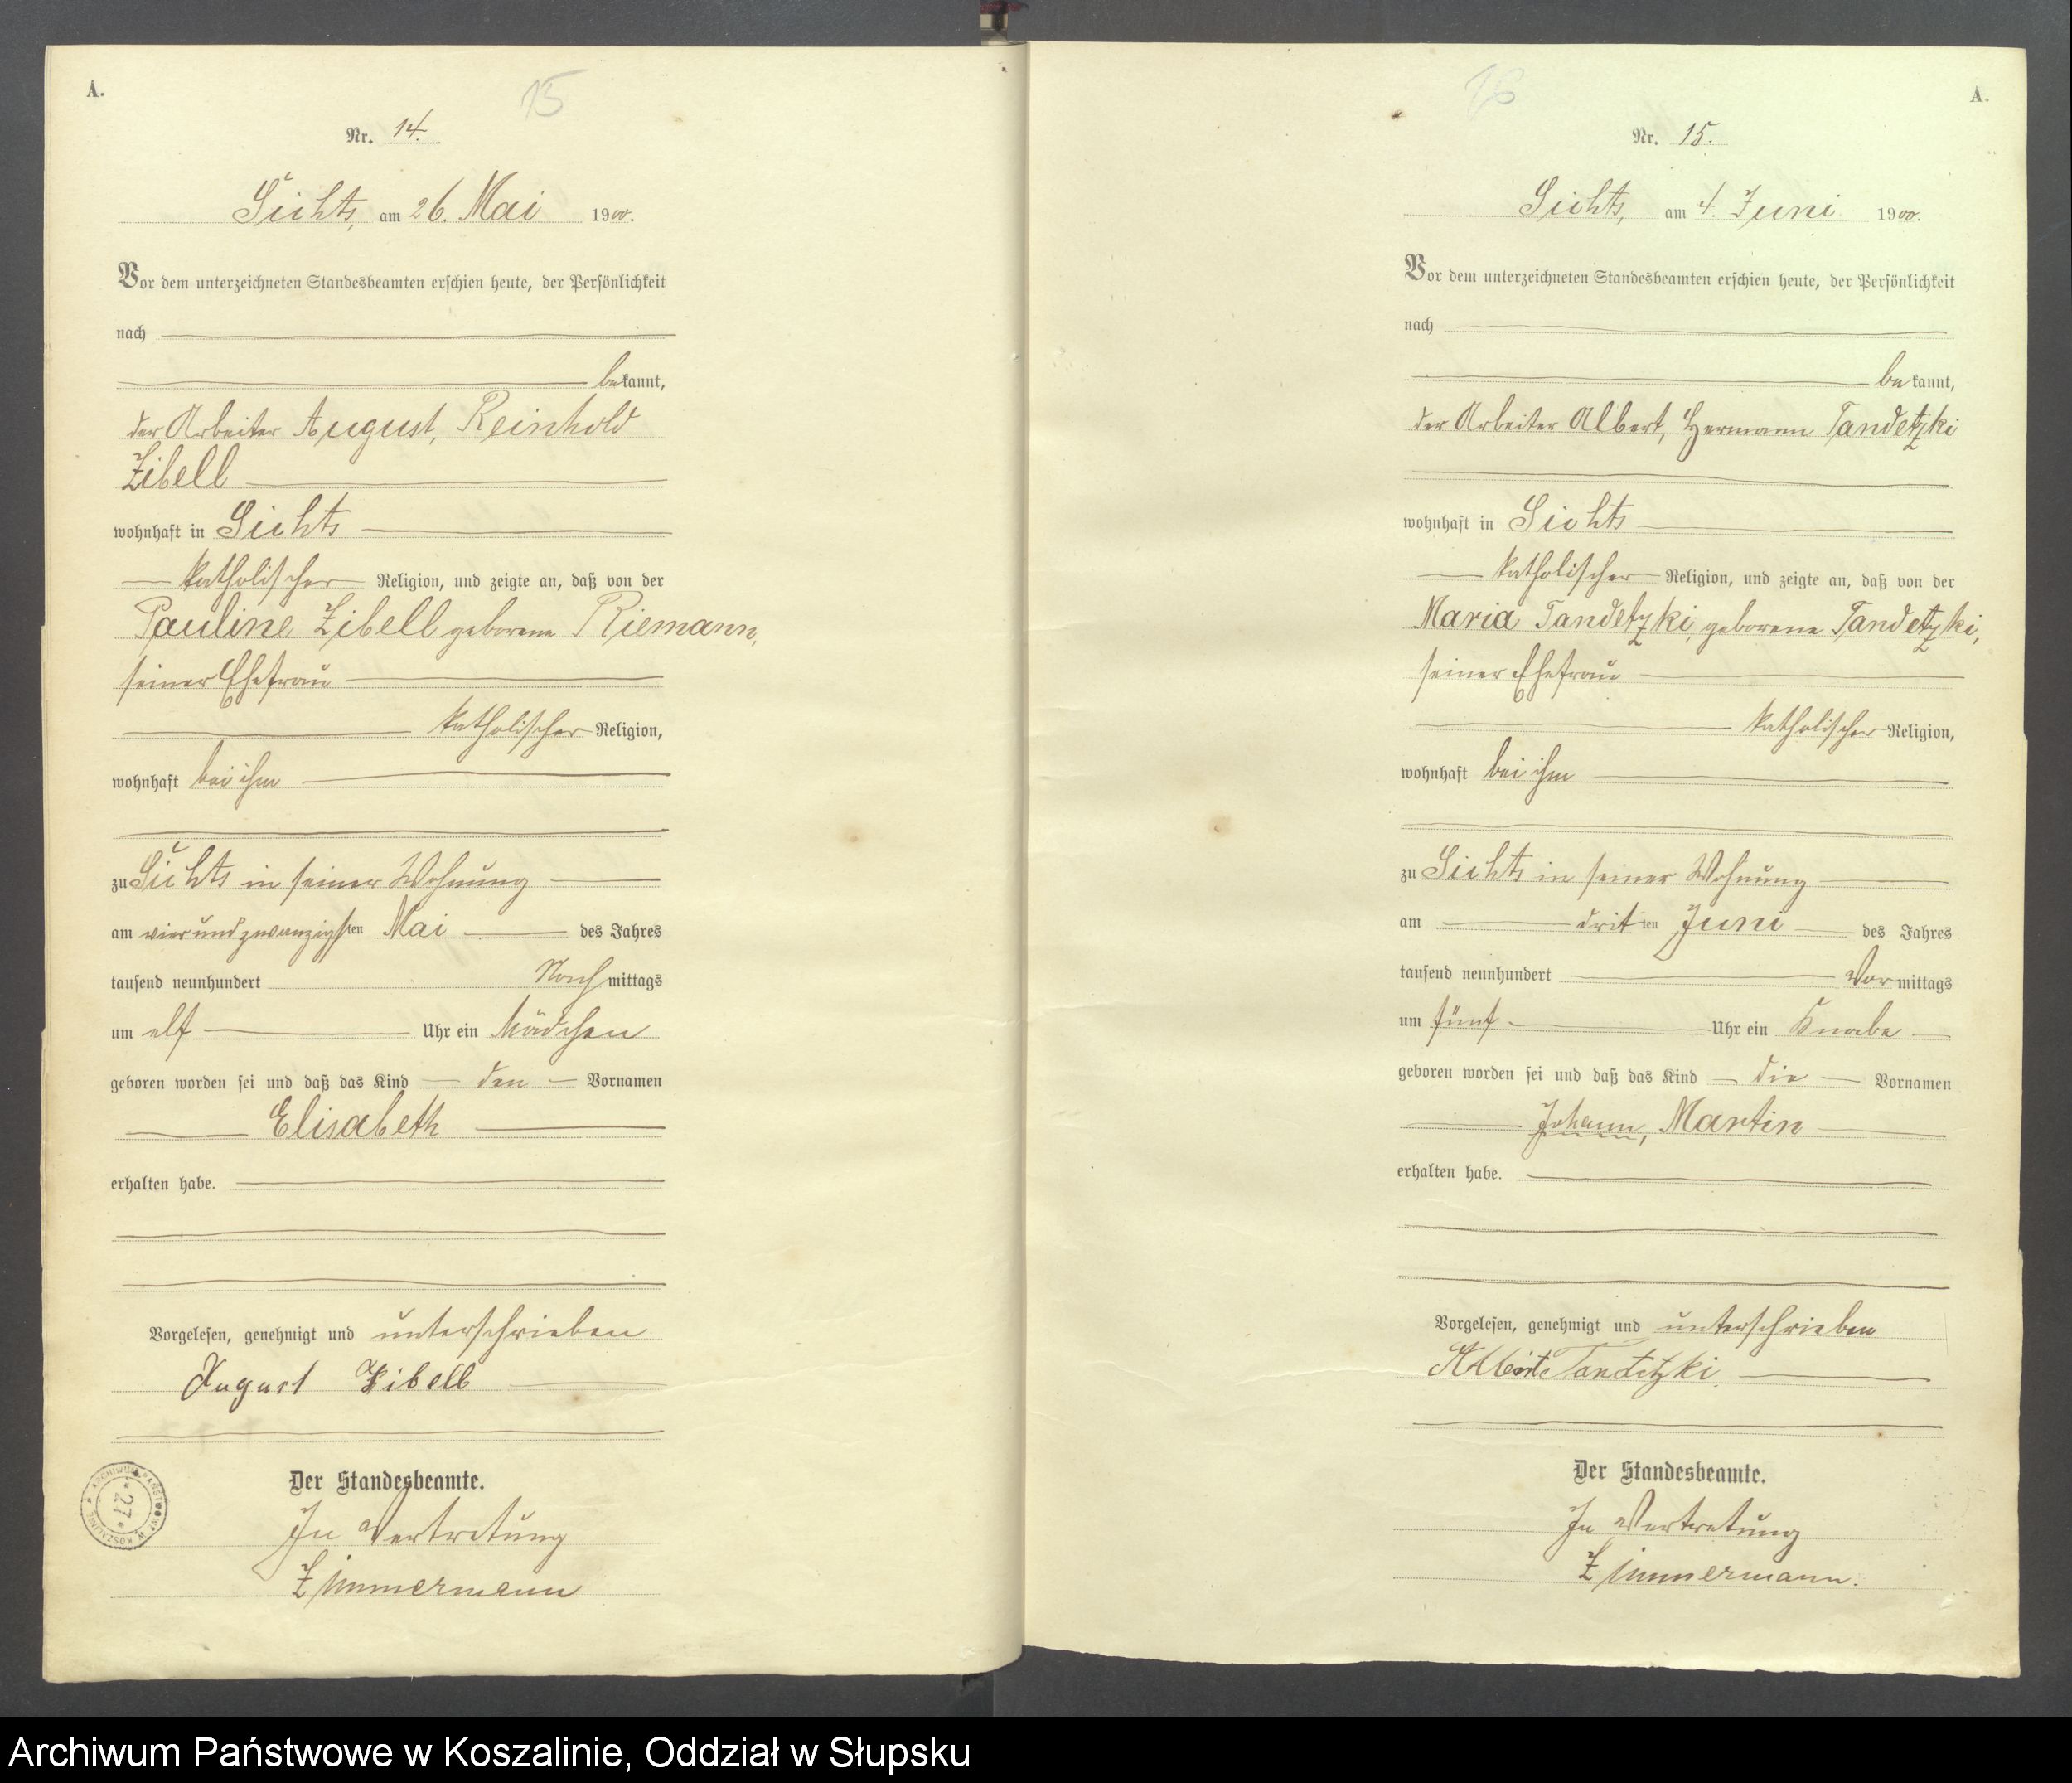 A.
15
Nr. 14.
Lichts, am 26. Mai 1900.
Vor dem unterzeichneten Standesbeamten erschien heute, der Persönlichkeit
nach
bekannt,
der Arbeiter August, Reinhold
Zibell
wohnhaft in Lichts
katholischer Religion, und zeigte an, daß von der
Pauline Zibell geborene Riemann,
seiner Ehefrau
katholischer Religion,
wohnhaft bei ihm
zu Lichts in seiner Wohnung
am vierundzwanzigsten Mai des Jahres
tausend neunhundert Nachmittags
um elf Uhr ein Mädchen
geboren worden sei und daß das Kind den Vornamen
Elisabeth
erhalten habe.
Vorgelesen, genehmigt und unterschrieben
August Zibell
Der Standesbeamte.
In Vertretung
Zimmermann
ARCHIWUM PAŃSTWOWE W KOSZALINIE
* 27 *
16
A.
Nr. 15.
Lichts, am 4. Juni 1900.
Vor dem unterzeichneten Standesbeamten erschien heute, der Persönlichkeit
nach
bekannt,
der Arbeiter Albert, Hermann Tandetzki
wohnhaft in Lichts
katholischer Religion, und zeigte an, daß von der
Maria Tandetzki, geborene Tandetzki,
seiner Ehefrau
katholischer Religion,
wohnhaft bei ihm
zu Lichts in seiner Wohnung
am dritten Juni des Jahres
tausend neunhundert Vormittags
um fünf Uhr ein Knabe
geboren worden sei und daß das Kind die Vornamen
Johann, Martin
erhalten habe.
Vorgelesen, genehmigt und unterschrieben
Tandetzki
Der Standesbeamte.
In Vertretung
Zimmermann.
Archiwum Państwowe w Koszalinie, Oddział w Słupsku